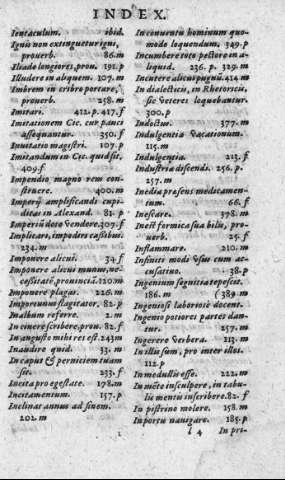 INDEX.
Ientaculum. ibid.
Ignis non extinguetur igni,
prouerb. 86.m
Iliade longiores, prou. 191.p
Illudere in aliquem. 107.m
Imbrem in cribro portare,
prouerb. 258.m
Imitari. 412.p.417.f
Imitationem Cic. cur pauci
assequantur. 350.f
Imitatio magistri. 107.p
Imitandum in Cic. quid sit.
409.f
Impendio magno rem con
struere. 400.m
Imperij amplificandi cupi
ditas in Alexand. 81.p
Imperij dece vendere. 307.f
Implicari, impediri casibus.
234.m
Imponere alicui. 34.f
Imponere alicui munus, ne-
cessitatē, prouinciā. 120.m
Imponere plagas. 226.m
Importunus flagitator. 82.p
In album referre. 2.m
In cinere scribere, prou. 82.f
In angusto mihi res est. 243.m
Inaudire quid. 33.m
In caput & perniciem tuam
sit. 233.f
Incita pro egestate. 178.m
Incitamentum. 157.p
Inclinat annus ad sinem.
202.m
In conuentu hominum quo-
modo loquendum. 349.p
Incumbere toto pectore in a-
liquid. 236.p. 329.m
Incutere alicui pugnū. 414.m
In dialecticis, in Rhetoricis
sic veteres loquebantur.
300.p
Inductus. 377.m
Indulgentia vacationum.
115.m
Indulgentia. 213.f
Industria discendi. 256.p.
257.m
Inedia praesens medicamen-
tum. 66.f
Inescare. 378.m
Inest formicae sua bilis, pro-
uerb. 25.f
Inflammare. 210.m
Infiniti modi vsus cum ac-
cusatiuo. 38.p
Ingenium segnitia repescit.
186.m (389.m
Ingeniosi laboriosè docent.
Ingenio potiores partes dan-
tur. 257.m
Ingerere verbera. 113.m
In illis sum, pro inter illos.
112.p
In medullis esse. 222.m
In mēte insculpere, in tabu-
lis mentis inscribere. 82.f
In pistrino molere. 158.m
In portu nauigare. 185.p
i 4 In pri-